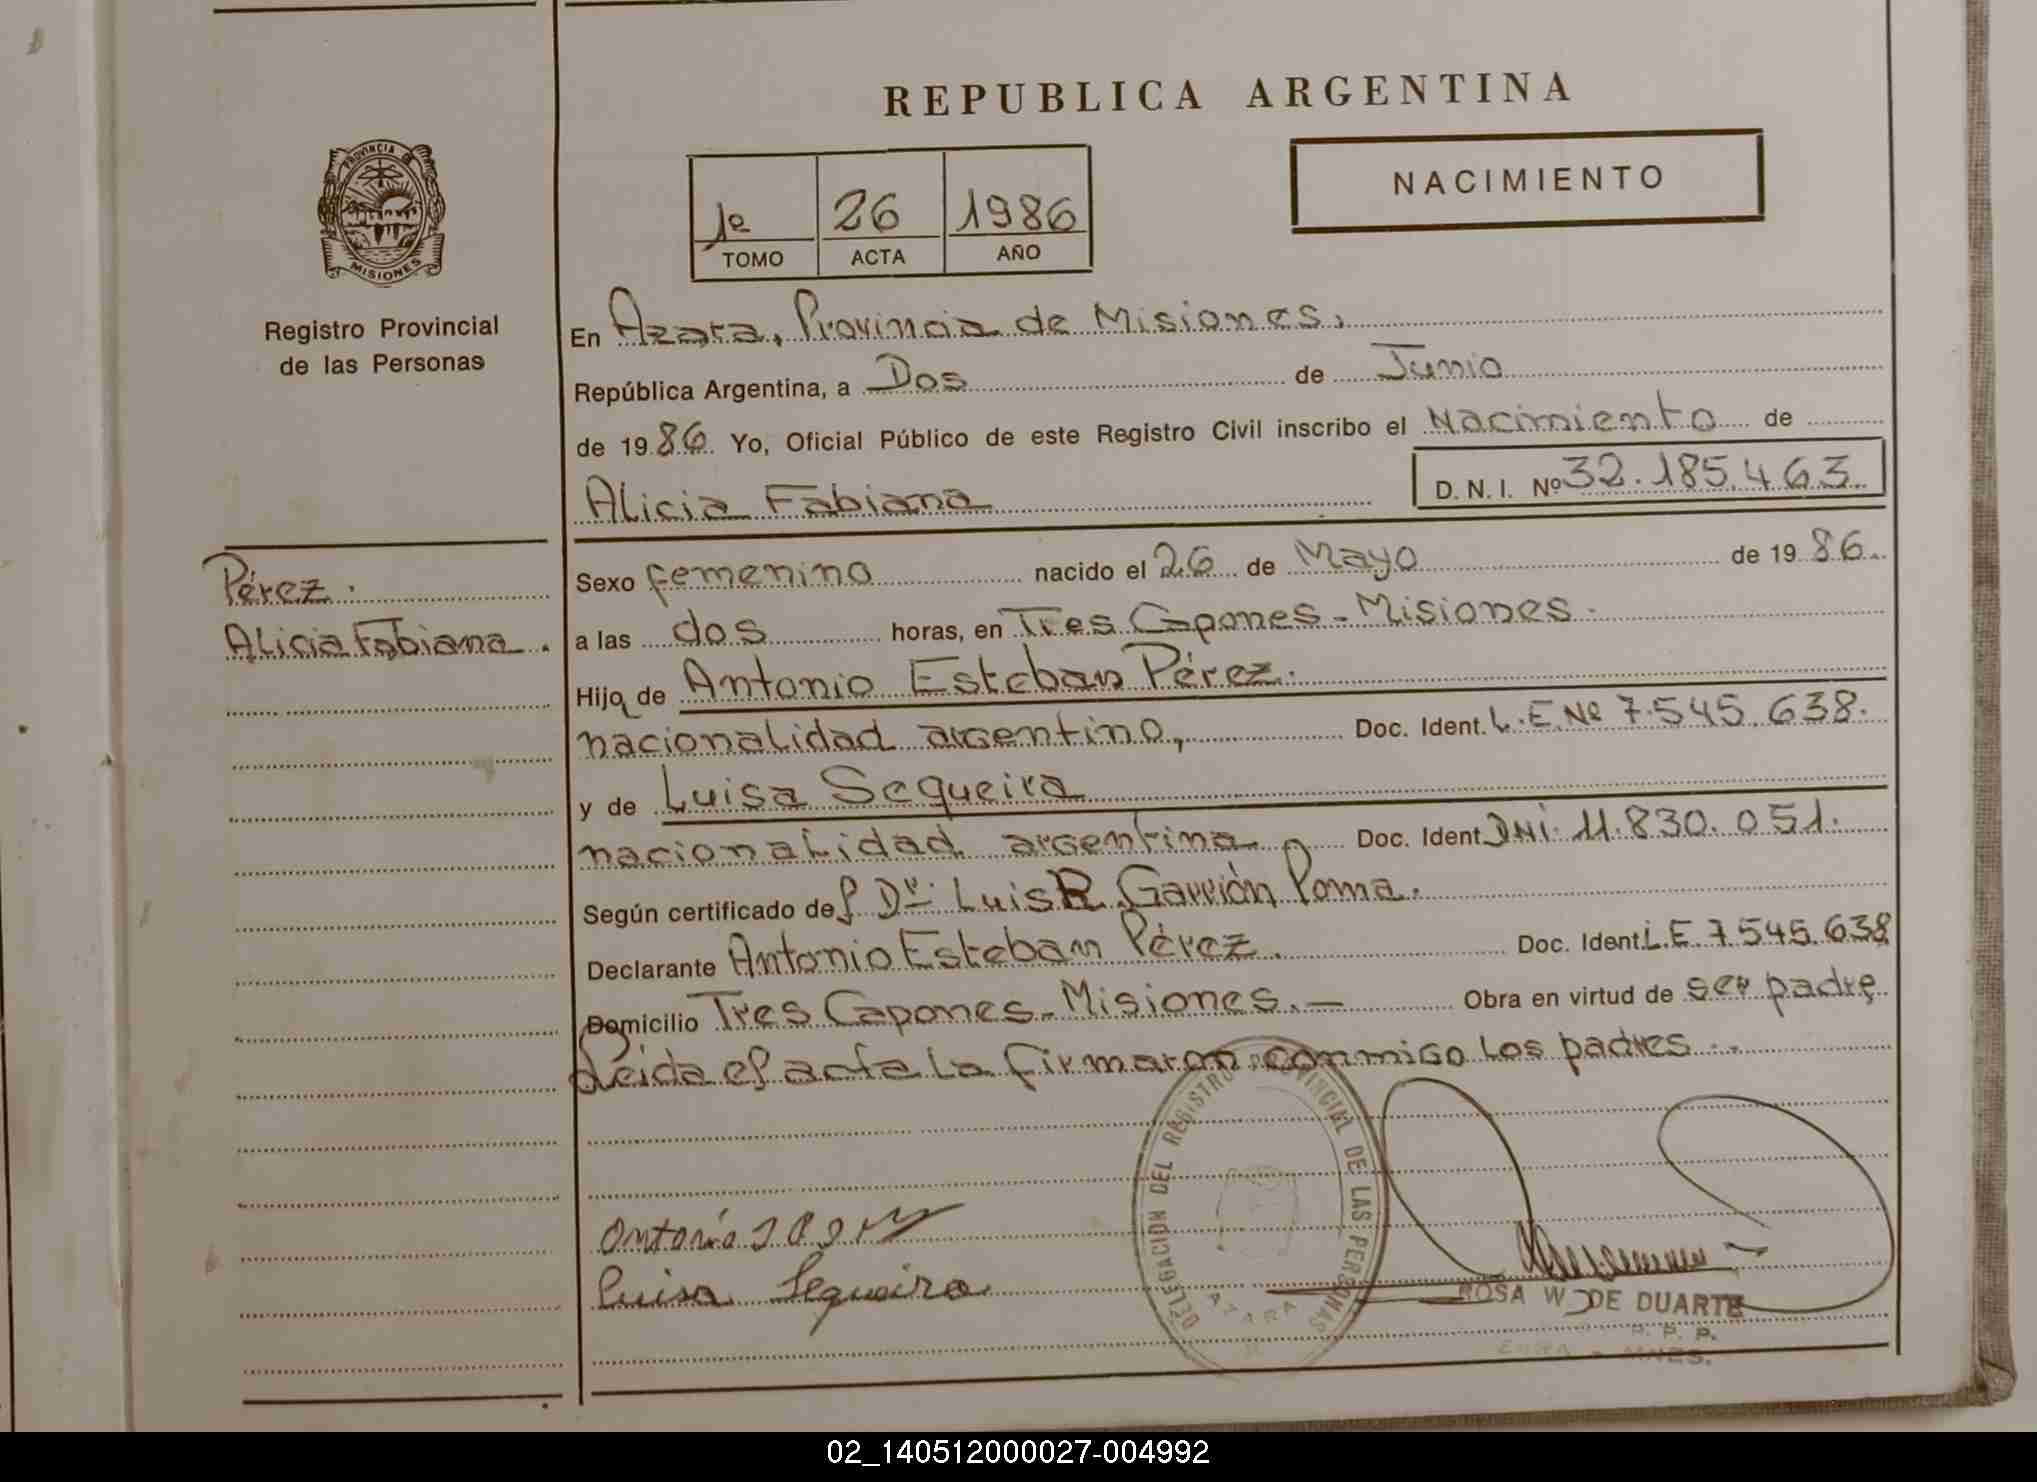 REPUBLICA ARGENTINA
PROVINCIA DE
MISIONES
Registro Provincial
de las Personas
1º 26 1986
TOMO ACTA AÑO
NACIMIENTO
En Azara, Provincia de Misiones.
República Argentina, a Dos de Junio
de 1986 Yo, Oficial Público de este Registro Civil inscribo el Nacimiento de
Alicia Fabiana D. N. I. Nº 32.185.463
Pérez.
Alicia Fabiana.
Sexo femenino nacido el 26 de Mayo de 1986.
a las dos horas, en Tres Capones - Misiones.
Hija de Antonio Esteban Pérez.
nacionalidad argentino, Doc. Ident. L.E. Nº 7.545.638.
y de Luisa Sequeira
nacionalidad argentina Doc. Ident. DNI. 11.830.051.
Según certificado del Dr. Luis R. Garrión Poma.
Declarante Antonio Esteban Pérez. Doc. Ident. L.E 7.545.638
Domicilio Tres Capones - Misiones. — Obra en virtud de ser padre
Leida el acta la firmaron conmigo los padres..
DELEGACION DEL REGISTRO PROVINCIAL DE LAS PERSONAS
AZARA
Antonio
Luisa Sequeira
ROSA W. DE DUARTE
02_140512000027-004992